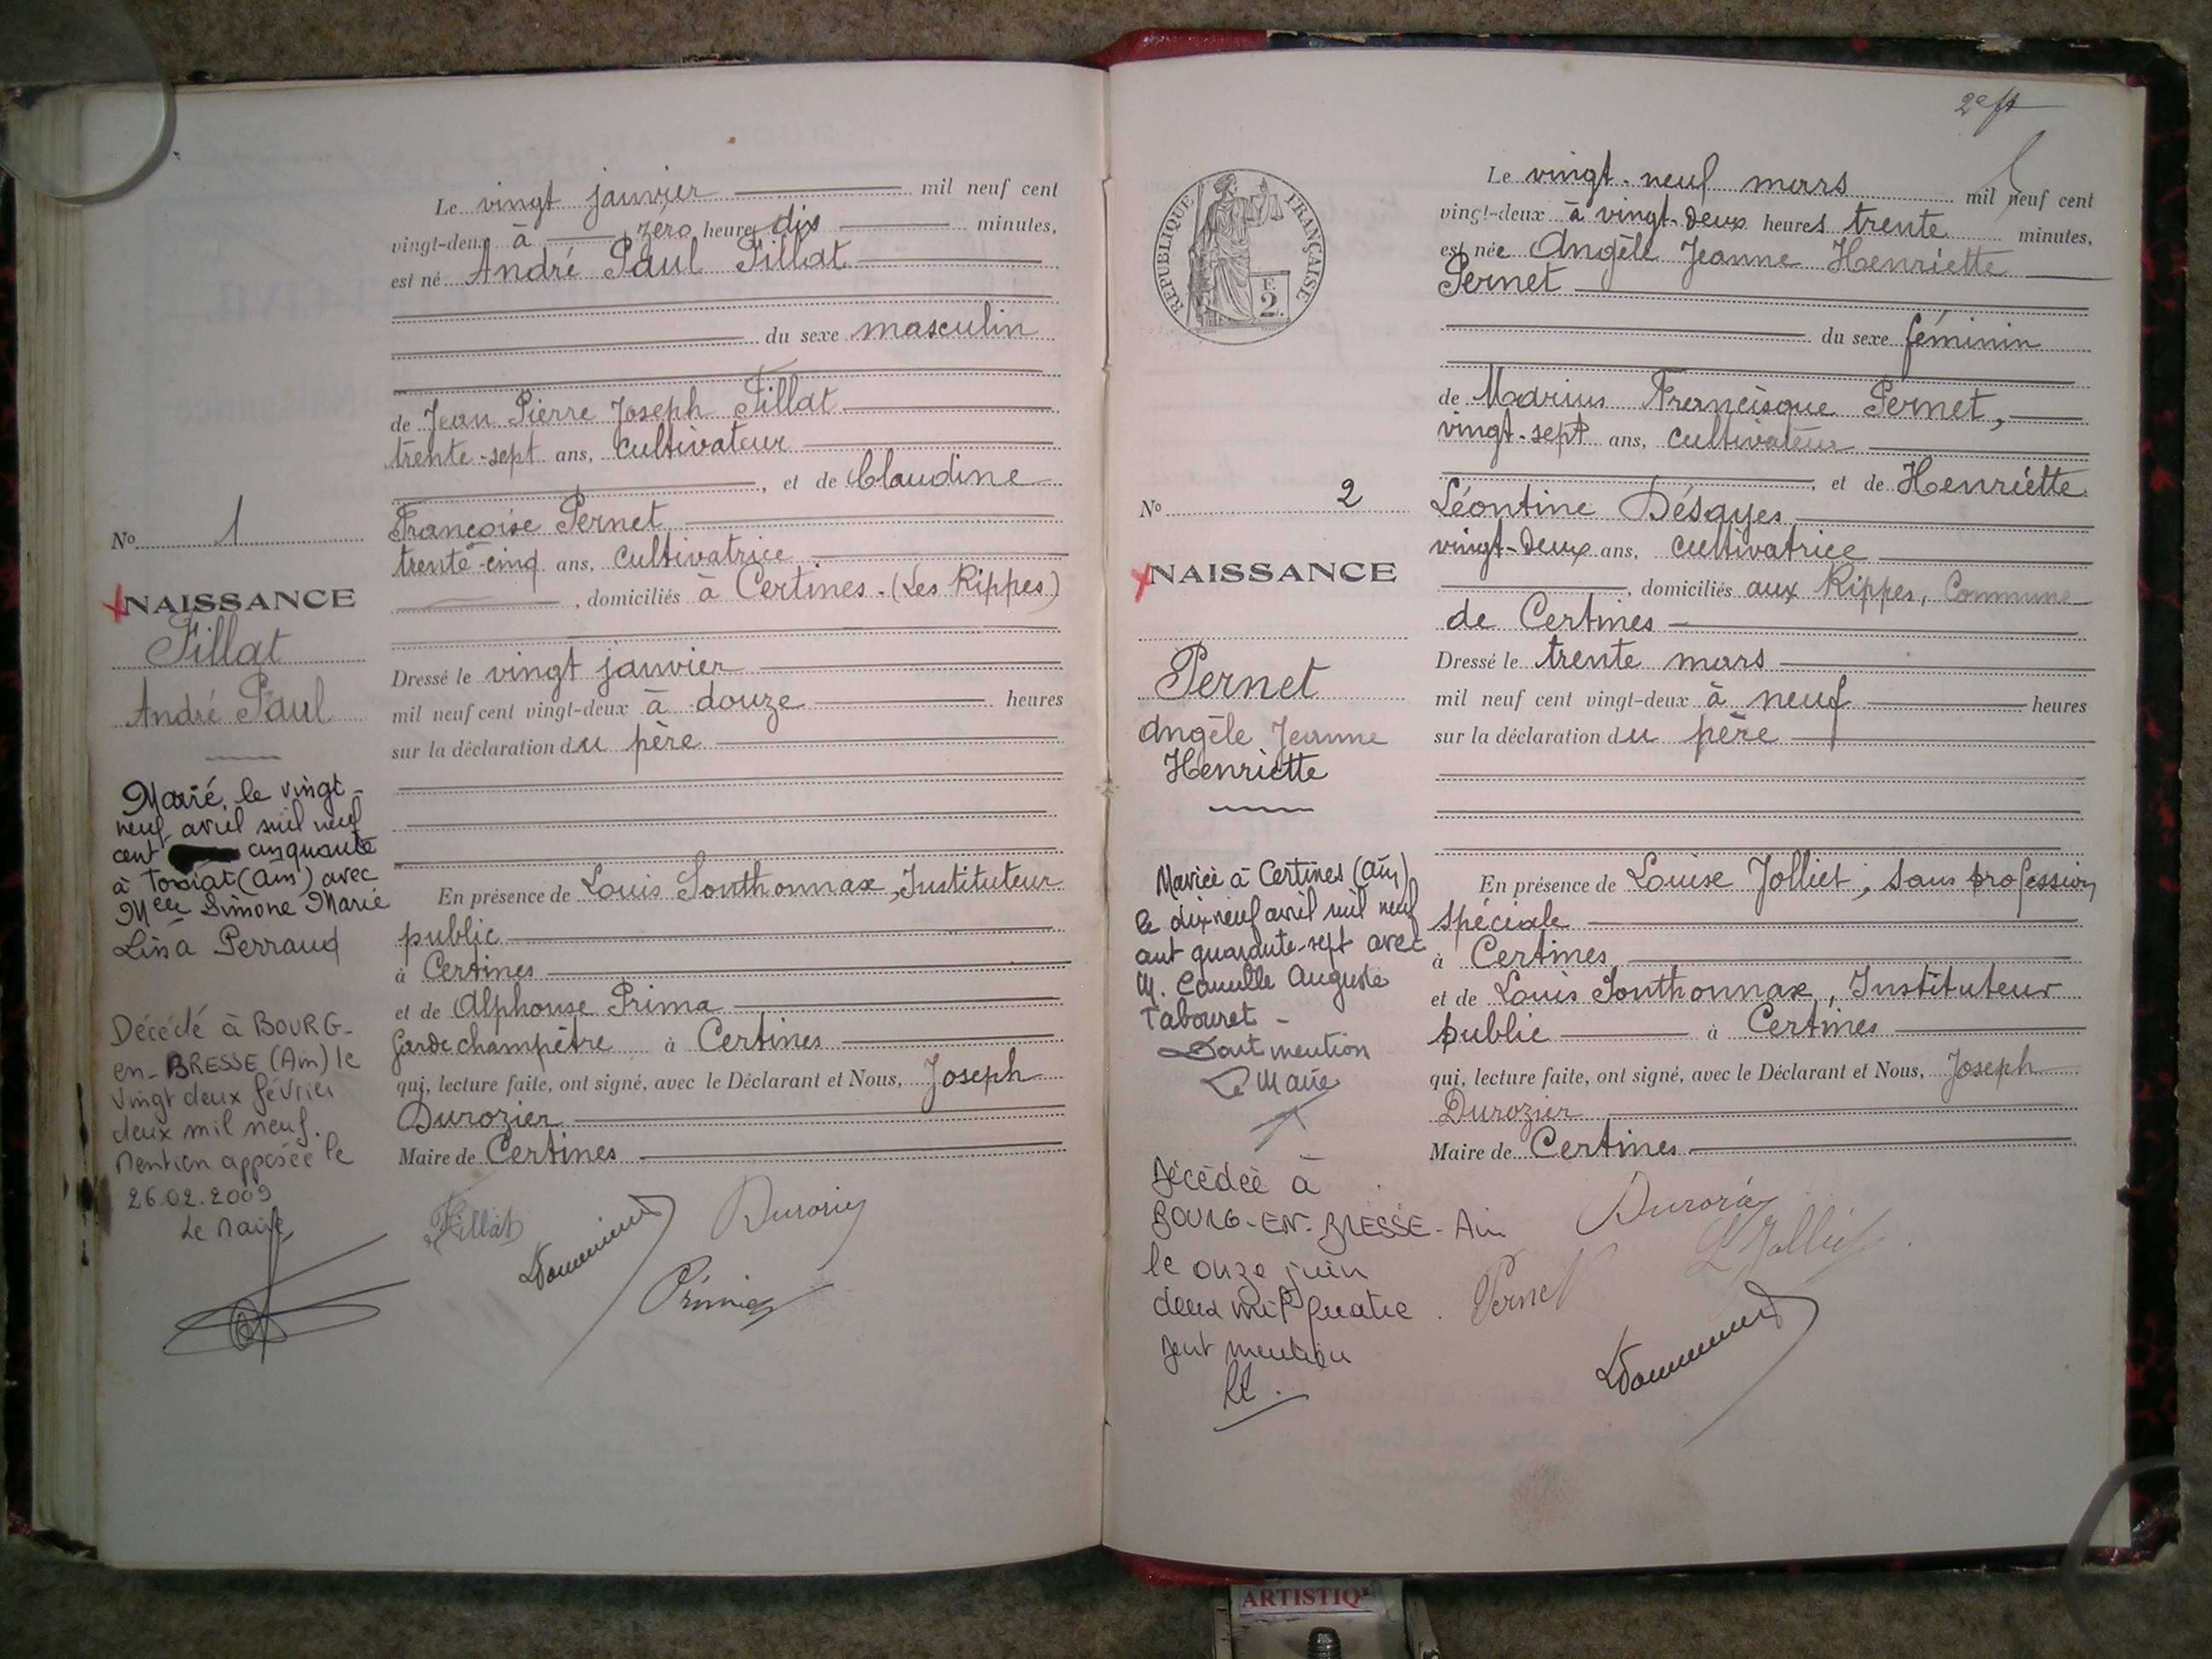 Le vingt janvier mil neuf cent
vingt-deux à zéro heure dix minutes,
est né André Paul Fillat
du sexe masculin
de Jean Pierre Joseph Fillat
trente-sept ans, cultivateur
, et de Claudine
Françoise Pernet
trente-cinq ans, cultivatrice
, domiciliés à Certines - (Les Rippes)
Dressé le vingt janvier
mil neuf cent vingt-deux à douze heures
sur la déclaration du père
En présence de Louis Sonthonnax, Instituteur
public
à Certines
et de Alphonse Prima
Garde champêtre à Certines
qui, lecture faite, ont signé, avec le Déclarant et Nous, Joseph
Durozier
Maire de Certines
Fillat
Durozier
No 1
NAISSANCE
Fillat
André Paul
Marié le vingt-
neuf avril mil neuf
cent cinquante
à Tossiat (Ain) avec
Melle Simone Marie
Lina Perraud
Décédé à BOURG-
en-BRESSE (Ain) le
vingt deux février
deux mil neuf.
Mention apposée le
26.02.2009
Le Maire,
2e ft
RÉPUBLIQUE FRANÇAISE
E
2.
Le vingt-neuf mars mil neuf cent
vingt-deux à vingt-deux heures trente minutes,
est née Angèle Jeanne Henriette
Pernet
du sexe féminin
de Marius Francisque Pernet,
vingt-sept ans, cultivateur
, et de Henriette
Léontine Désayes
vingt-deux ans, cultivatrice
, domiciliés aux Rippes, Commune
de Certines
Dressé le trente mars
mil neuf cent vingt-deux à neuf heures
sur la déclaration du père
En présence de Louise Jolliet, sans profession
spéciale
à Certines
et de Louis Sonthonnax, Instituteur
public à Certines
qui, lecture faite, ont signé, avec le Déclarant et Nous, Joseph
Durozier
Maire de Certines
Durozier
L Jolliet
Pernet
No 2
NAISSANCE
Pernet
Angèle Jeanne
Henriette
Mariée à Certines (Ain)
le dix neuf avril mil neuf
cent quarante-sept avec
M. Camille Auguste
Tabouret -
Dont mention
Le Maire
Décédée à
BOURG-EN-BRESSE-Ain
le onze juin
deux mil quatre
dont mention
ARTISTIQ